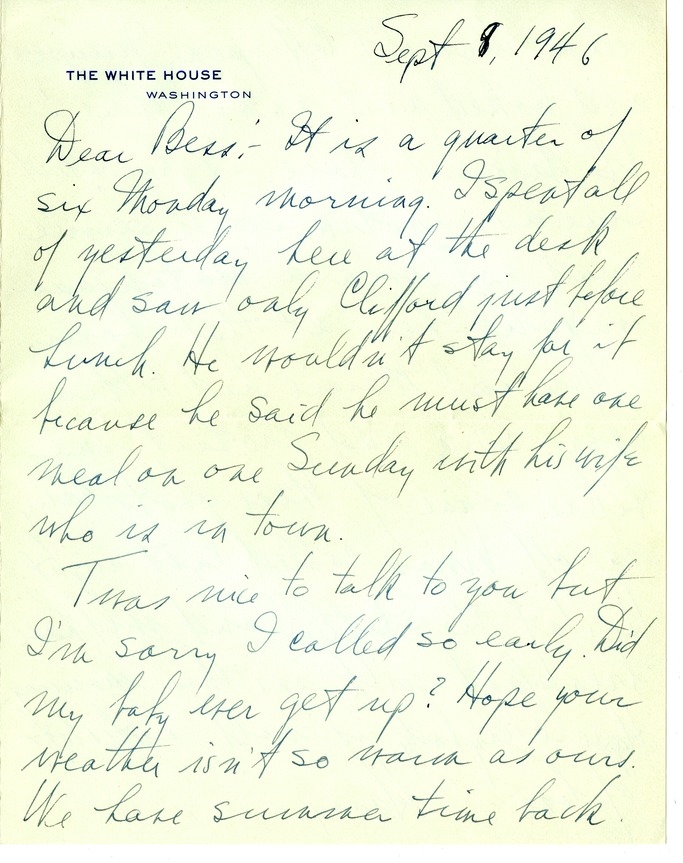 Sept 9, 1946
THE WHITE HOUSE
WASHINGTON
Dear Bess:- It is a quarter of
six Monday morning. I spent all
of yesterday here at the desk
and saw only Clifford just before
lunch. He wouldn't stay for it
because he said he must have one
meal on one Sunday with his wife
who is in town.
Twas nice to talk to you but
I'm sorry I called so early. Did
my baby ever get up? Hope your
weather isn't so warm as ours.
We have summer time back.